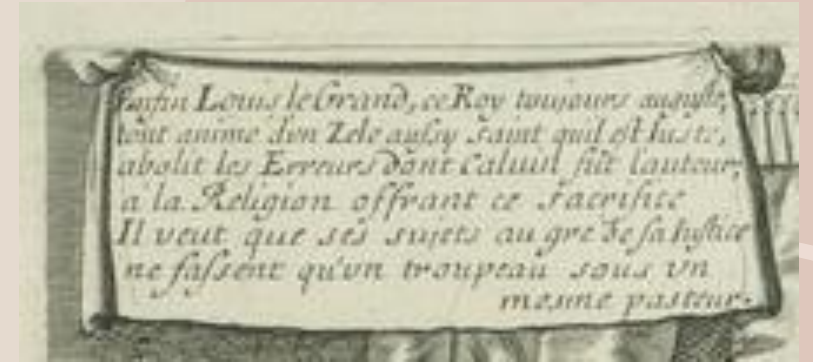 Enfin Louis le Grand, ce Roy toujours auguste,
tout anime d'vn Zele aussy saint quil est Iuste,
abolit les Erreurs dont Caluin fut l'auteur,
a la Religion offrant ce sacrifice
Il veut que ses sujets au gre de sa Iustice
ne fassent qu'vn troupeau sous vn
mesme pasteur.